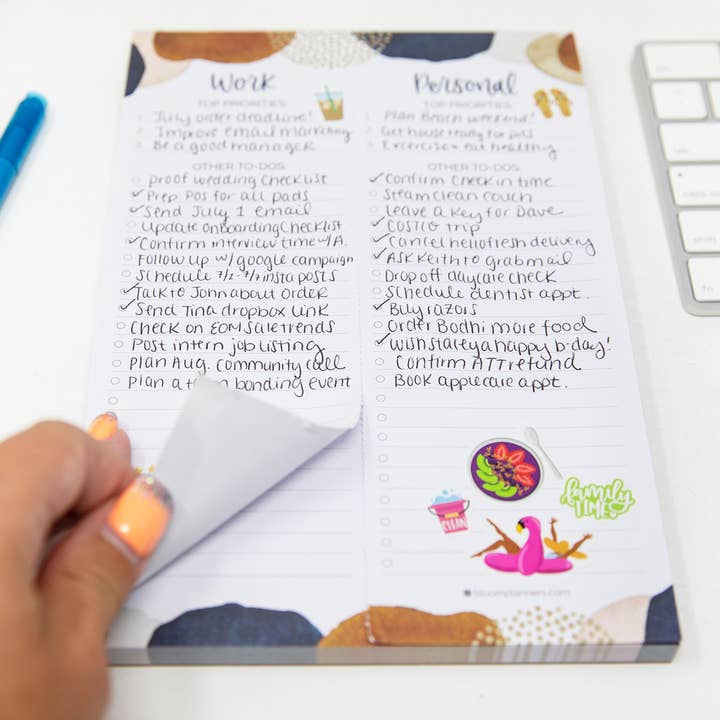 Work
TOP PRIORITIES
1. July order deadline!
2. Improve email marketing
3. Be a good manager
OTHER TO-DOS
Proof wedding checklist
✓ Prep Pos for all pads
✓ Send July 1 email
Update onboarding checklist
✓ Confirm interview time w/A.
Follow up w/ google campaign
Schedule 7/2-7/7 insta posts
✓ Talk to John about order
✓ Send Tina dropbox link
Check on EOM sale trends
Post intern job listing
Plan Aug. community call
Plan a bonding event
Personal
TOP PRIORITIES
1. Plan Beach weekend!
2. Get house ready for
3. Excercise + eat healthy
OTHER TO-DOS
✓ Confirm check in time
Steam clean couch
Leave a key for Dave
✓ COSTCO trip
✓ Cancel hellofresh delivery
✓ ASK Keith to grab mail
Drop off daycare check
Schedule dentist appt.
✓ Buy razors
Order Bodhi more food
✓ Wish a happy b-day!
Confirm ATT refund
BOOK applecare appt.
CLEAN
family
TIME
bloomplanners.com
fn